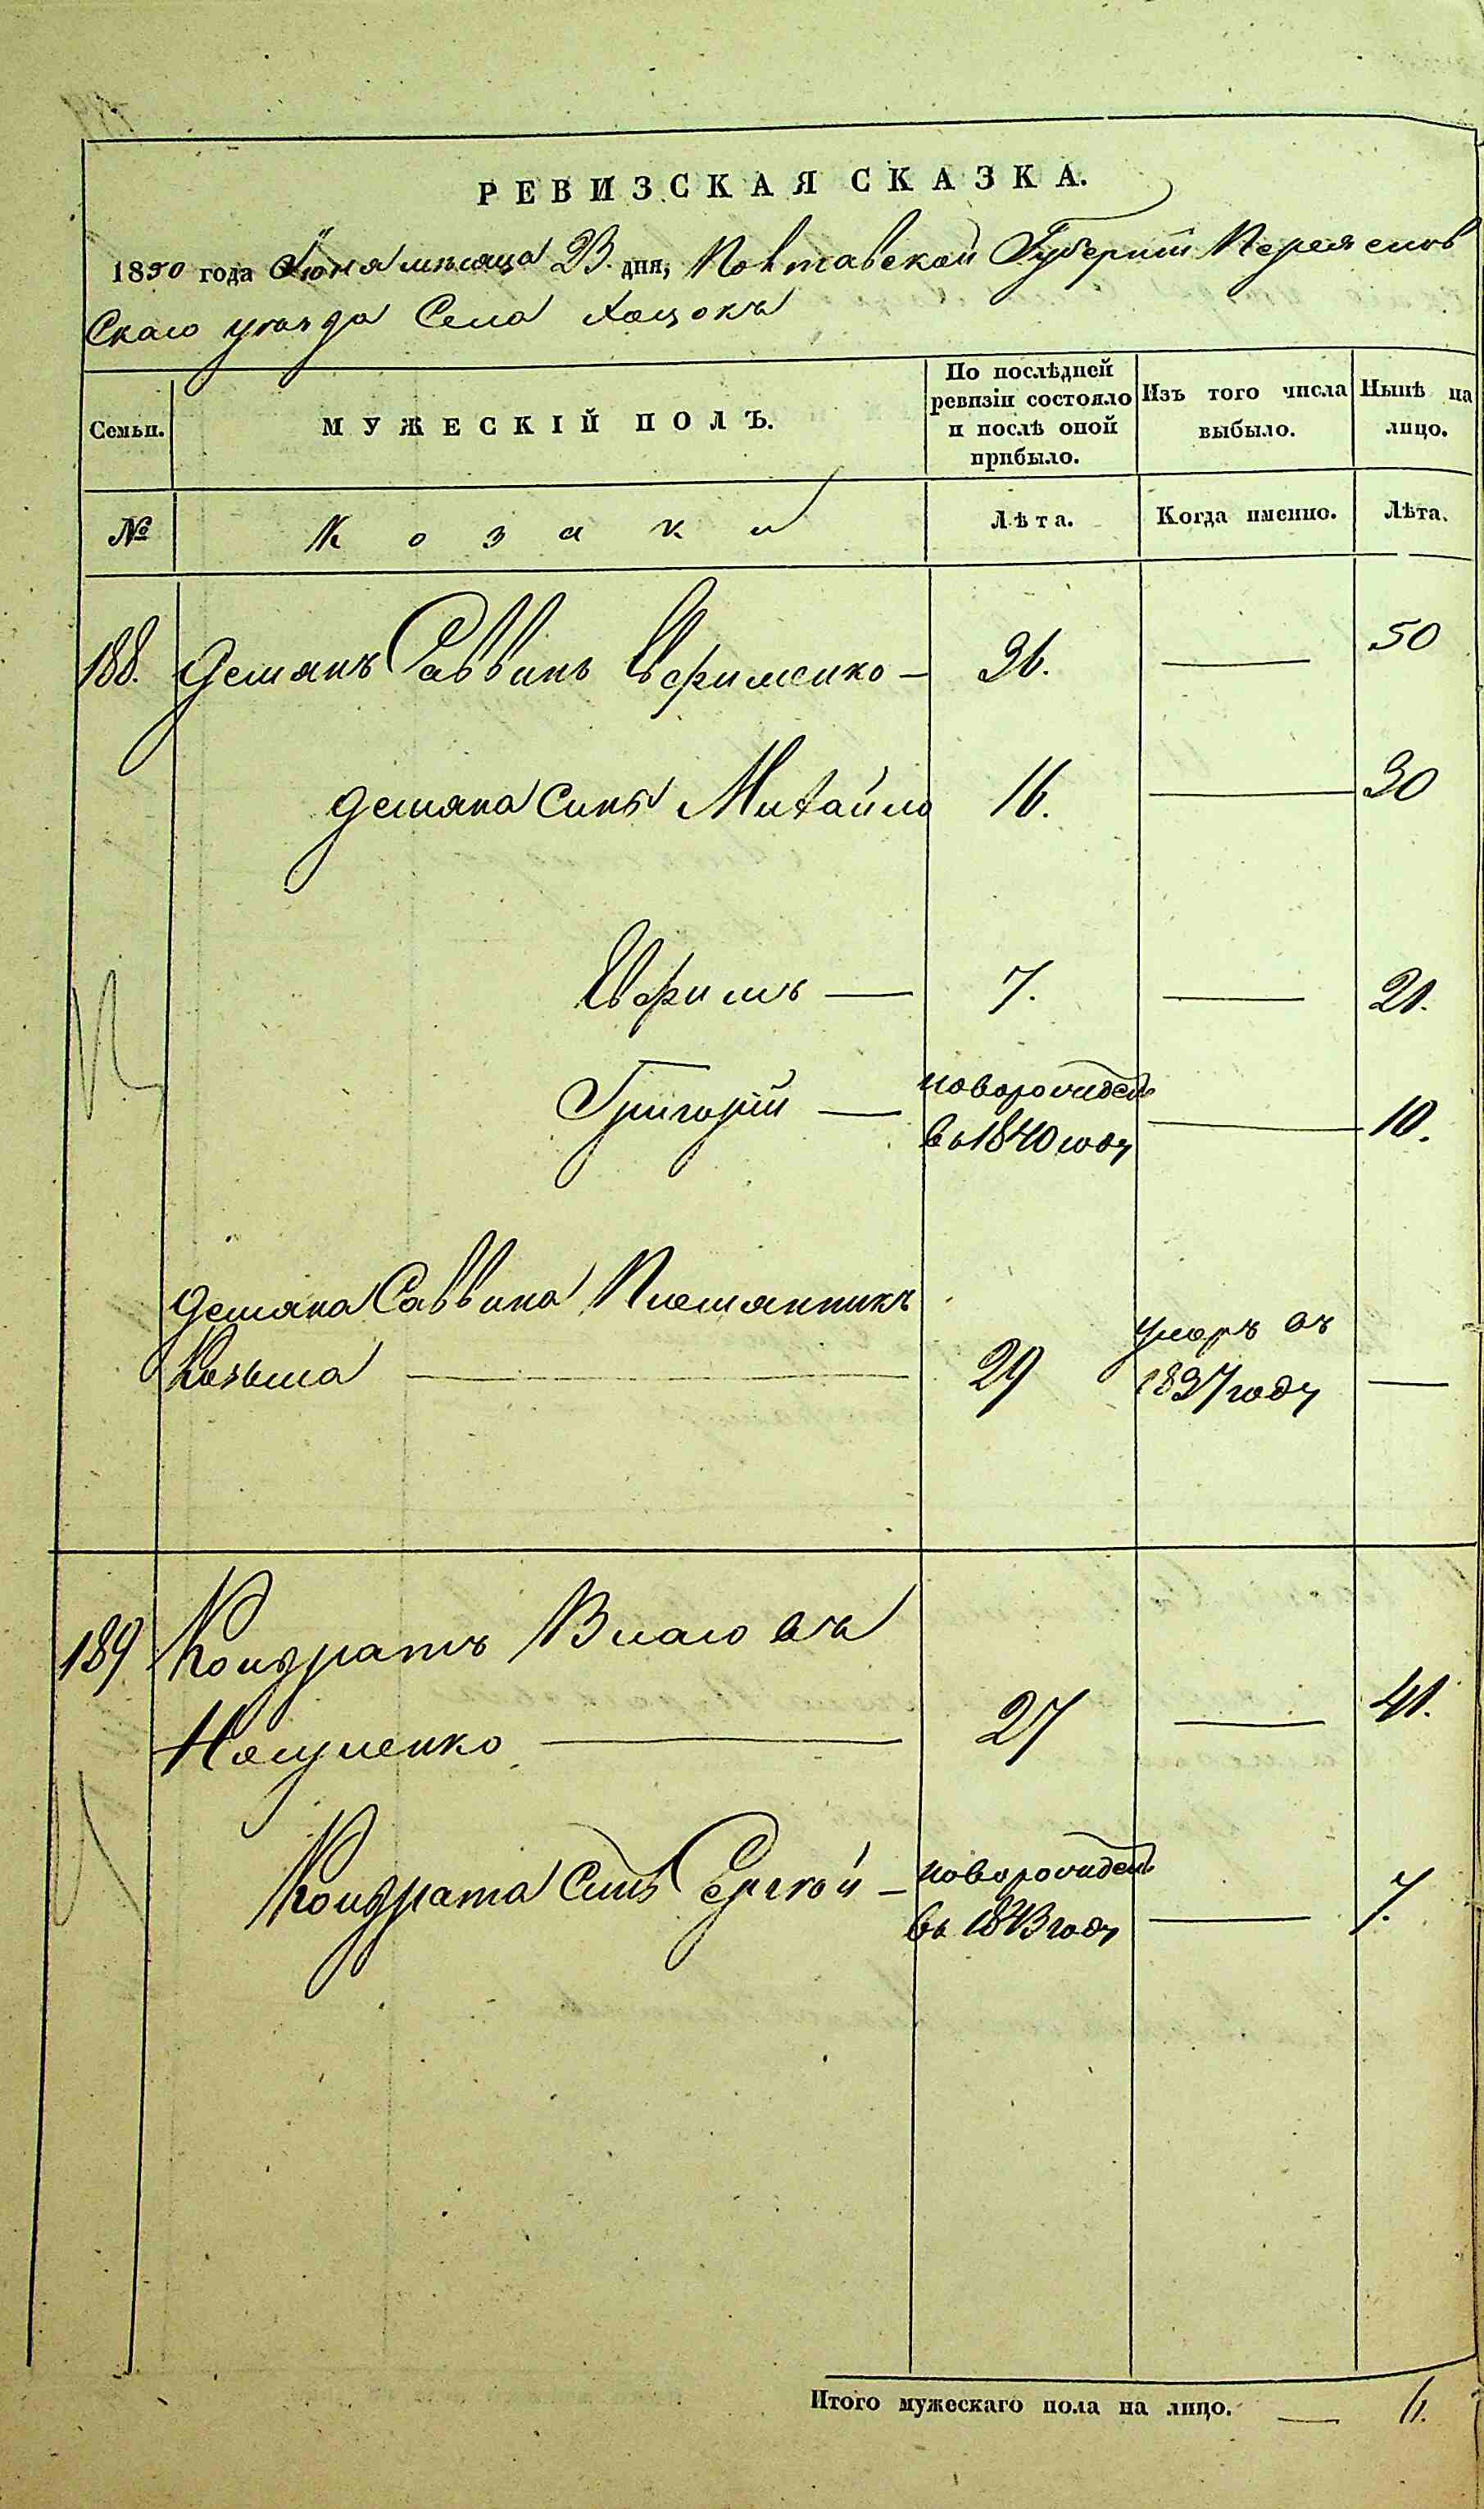 РЕВИЗСКАЯ СКАЗКА.
1850 года Июня мѣсяца 23 дня, Полтавской Губерніи Переяслов
Скаго уѣзда Села Хоцокъ
Семьи.
МУЖЕСКІЙ ПОЛЪ.
По послѣдней ревизіи состояло и послѣ оной прибыло.
Изъ того числа выбыло.
Нынѣ на лицо.
№
Козаки
Лѣта.
Когда именно.
Лѣта.
188. Демянъ Саввинъ Ефименко — 36. — 50
Демяна Синъ Михайло 16. — 30
Ефимъ — 7. — 21.
Григорій — новорожден
въ 1840 году — 10.
Демяна Саввина Племянникъ
Козьма — 29 умеръ въ
1837 году —
189 Кондратъ Власовъ
27 — 41.
Кондрата Синъ Сергей — новорожден
въ 1843 году — 7.
Итого мужескаго пола на лицо. — 6.